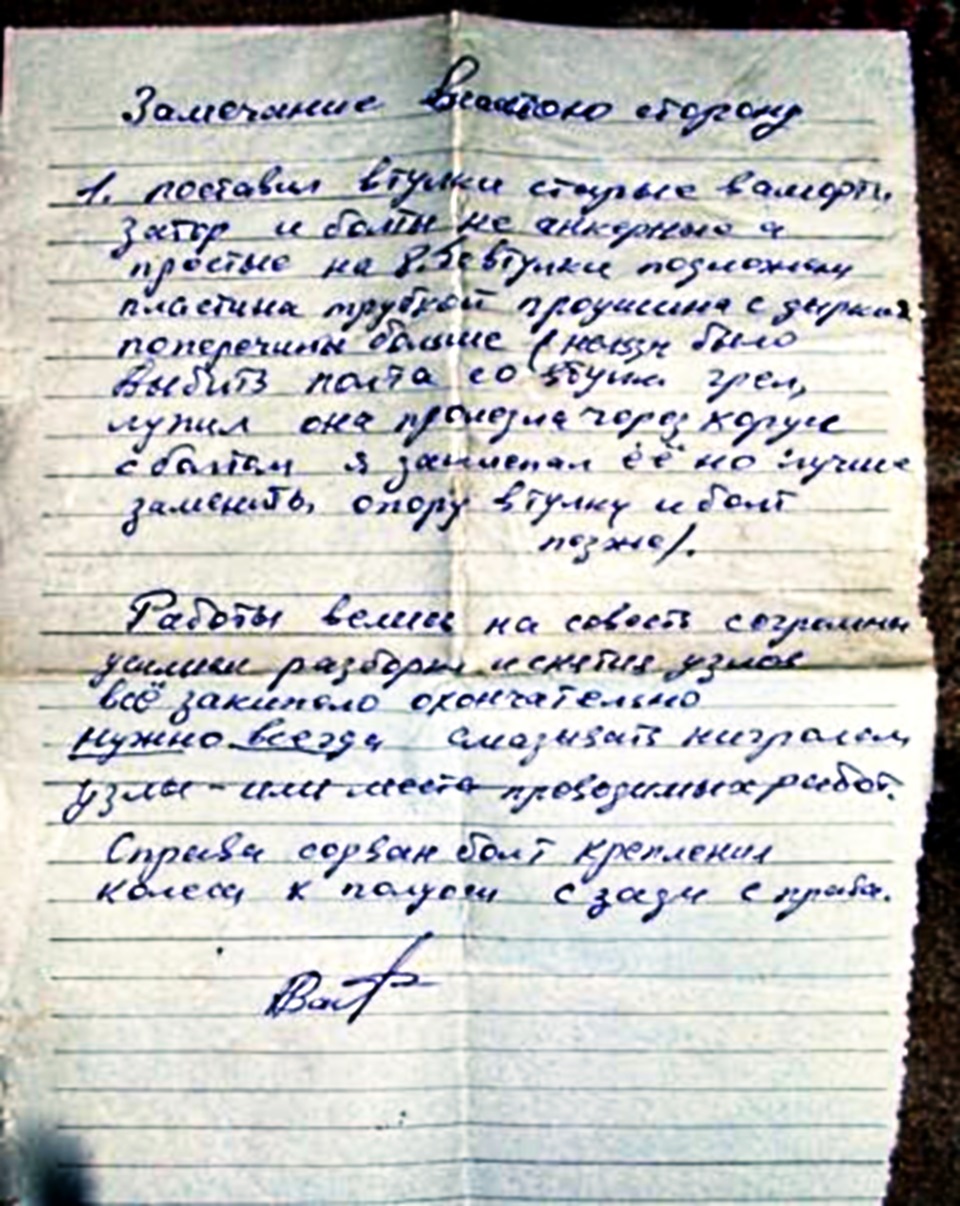 Замечание сторону
1. поставил втулки старые в аморти
затор и болты не анкерные а
простые на втулки подложены
пластина трубкой проушина с
поперечины больше было
выбить со грел,
лупил она пролезла через корпус
с болтом я заклепал её но лучше
заменить опору втулку и болт
позже).
Работы велись на совесть с огромны
усилием разборки и снятия узлов
всё закипело окончательно
нужно всегда смазывать нигролом
узлы или места проводимых работ.
Справа сорван болт крепления
колеса к полуоси с зади с права.